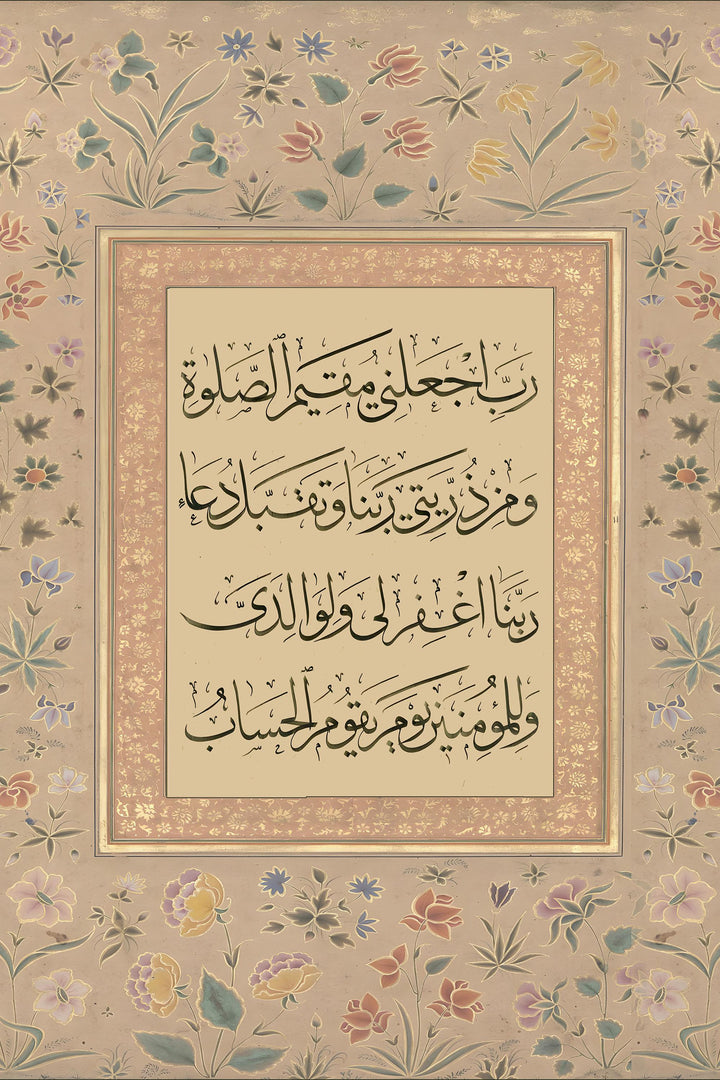 رَبِّ اجْعَلْنِي مُقِيمَ ٱلصَّلٰوةِ
وَمِنْ ذُرِّيَّتِي رَبَّنَا وَتَقَبَّلْ دُعَاءِ
رَبَّنَا اغْفِرْ لِى وَلِوَالِدَىَّ
وَلِلْمُؤْمِنِينَ يَوْمَ يَقُومُ ٱلْحِسَابُ